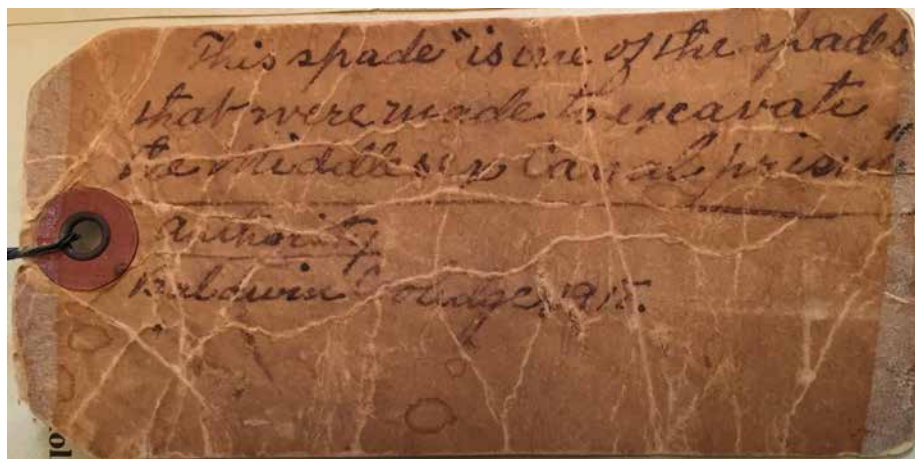 This spade" is one of the spades
that were made to excavate
the Middlesex Canal prism"
Authority
Baldwin Coolidge, 1915.
ol